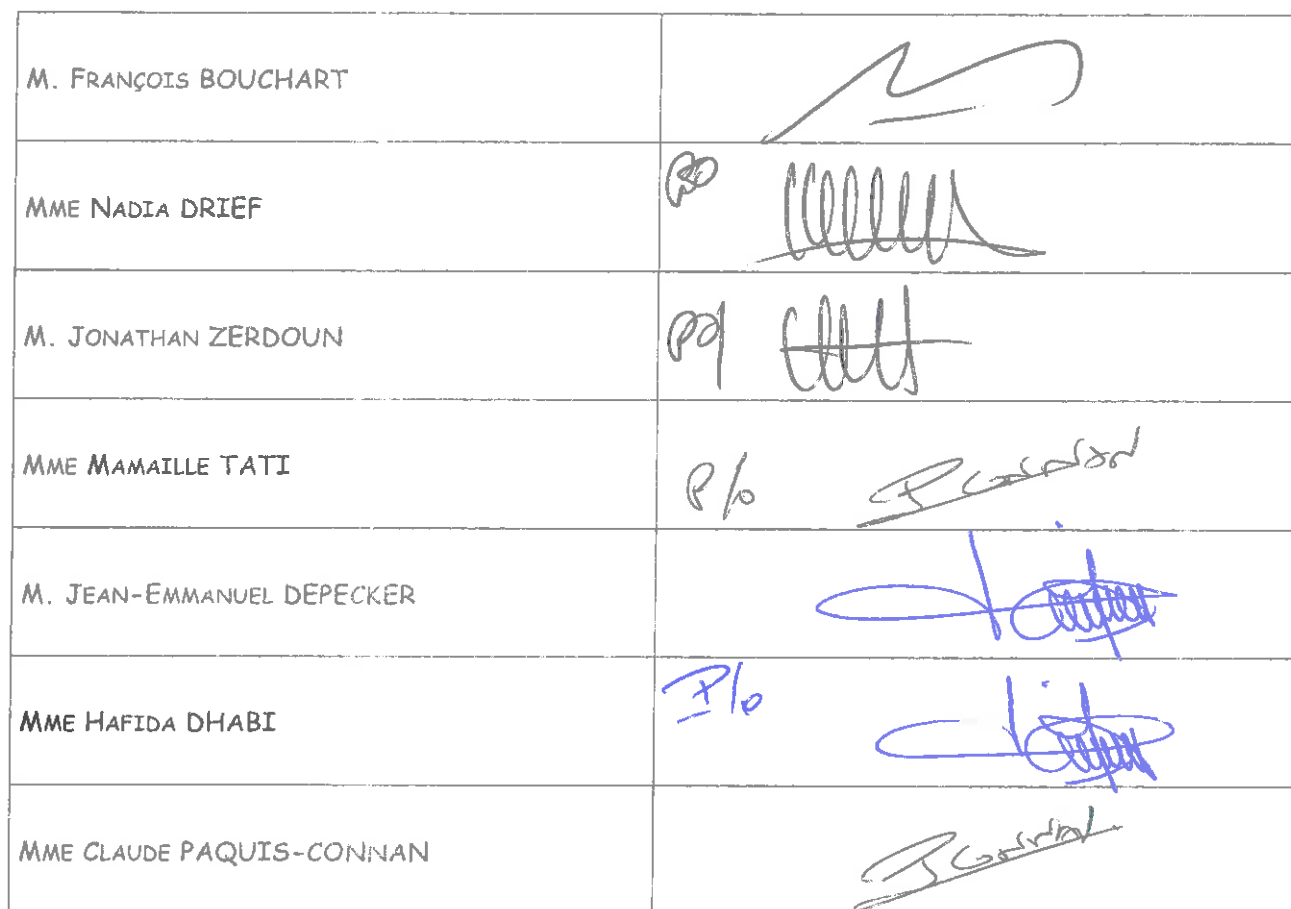 M. FRANÇOIS BOUCHART
MME NADIA DRIEF
M. JONATHAN ZERDOUN
MME MAMAILLE TATI
P/o
M. JEAN-EMMANUEL DEPECKER
MME HAFIDA DHABI
P/o
MME CLAUDE PAQUIS-CONNAN